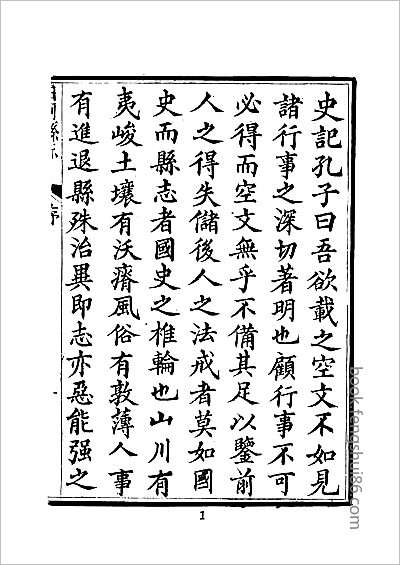 史記孔子曰吾欲載之空文不如見
諸行事之深切著明也顧行事不可
必得而空文無乎不備其足以鑒前
人之得失儲後人之法戒者莫如國
史而縣志者國史之椎輪也山川有
夷峻土壤有沃瘠風俗有敦薄人事
有進退縣殊治異即志亦惡能强之
序
1
book.fengshui86.com